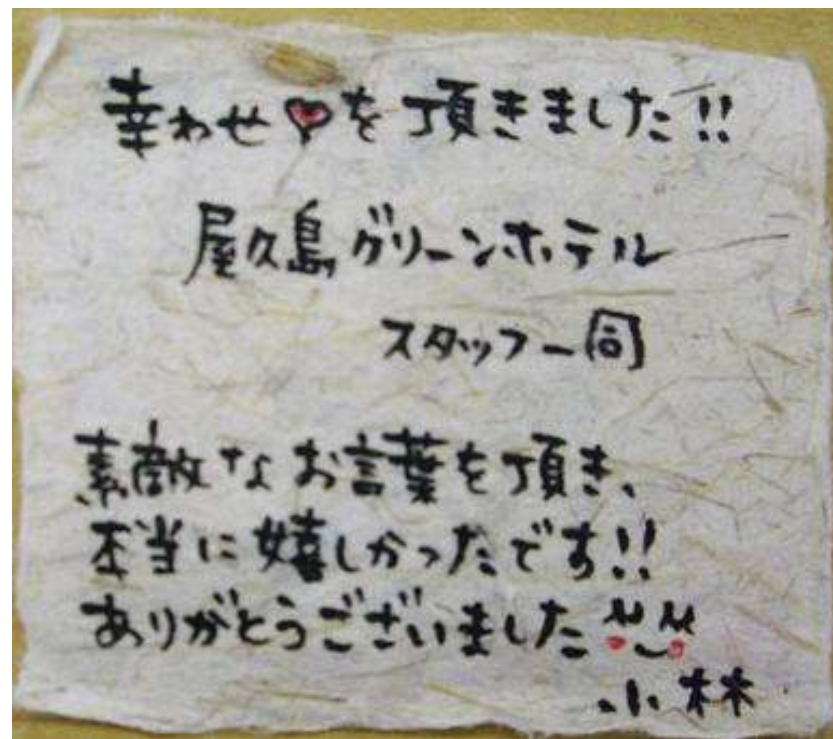 幸わせ♡を頂きました!!
屋久島グリーンホテル
スタッフ一同
素敵なお言葉を頂き、
本当に嬉しかったです!!
ありがとうございました
小林